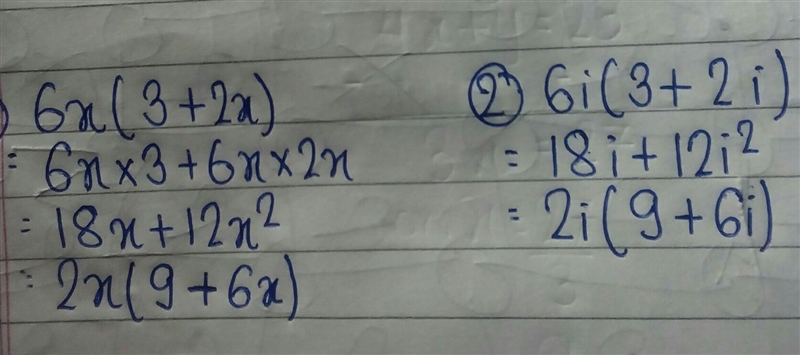 ) 6x(3+2x)
= 6x×3+6x×2x
= 18x+12x²
= 2x(9+6x)
② 6i(3+2i)
= 18i+12i²
= 2i(9+6i)